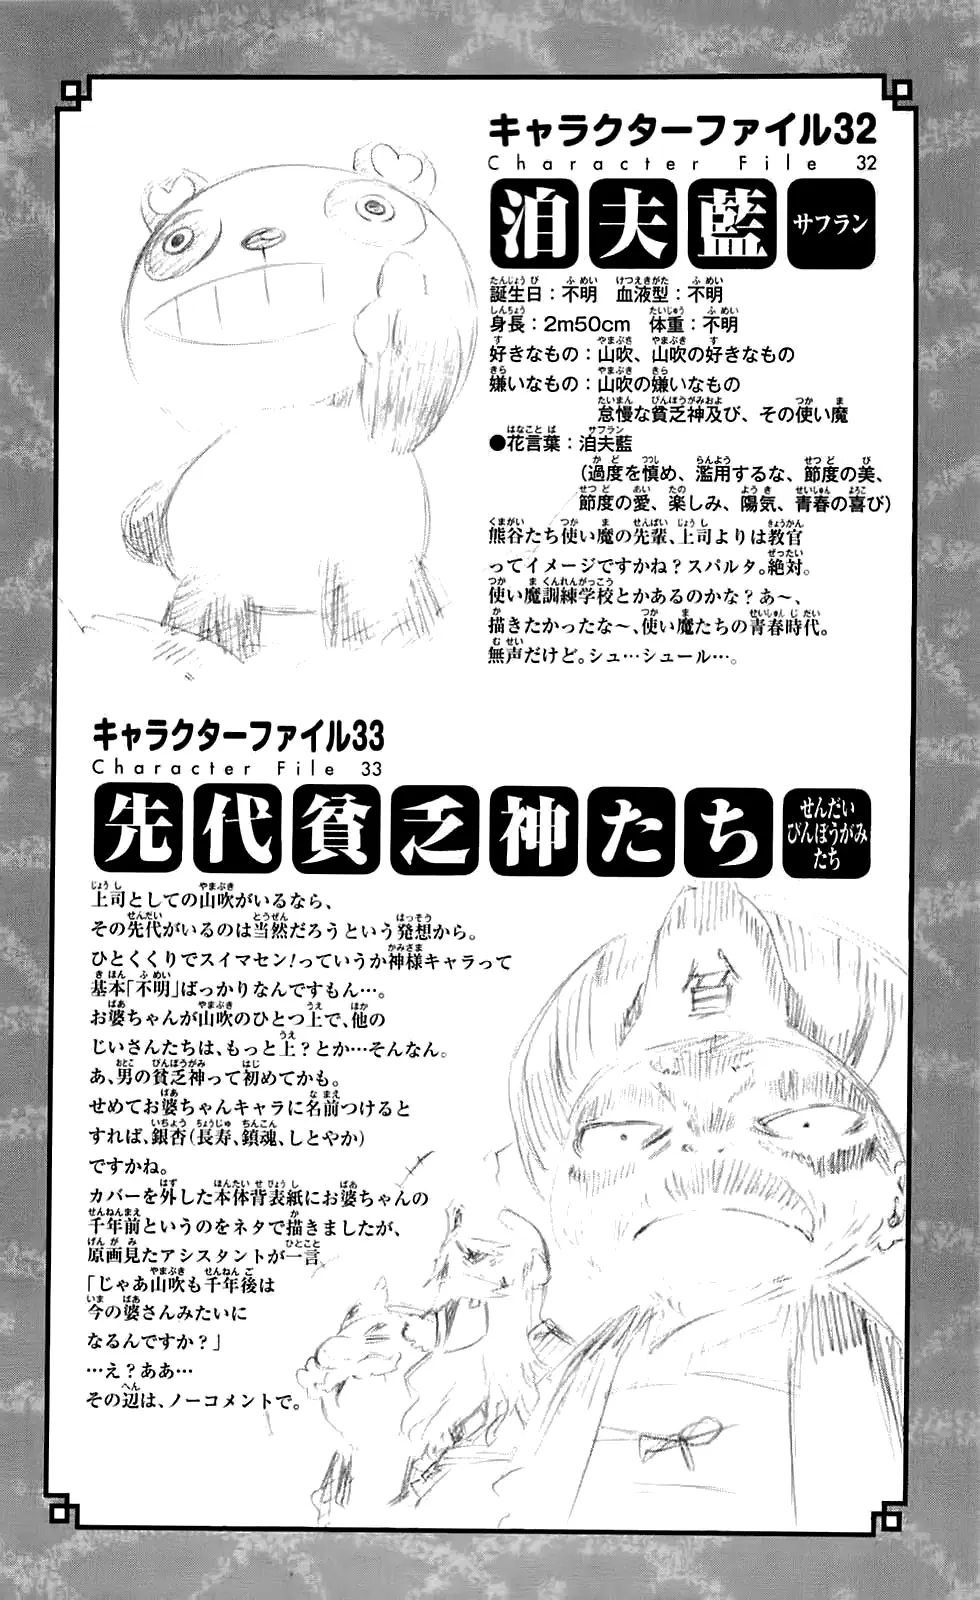 キャラクターファイル32
Character File 32
洎夫藍 サフラン
誕生日：不明　血液型：不明
身長：2m50cm　体重：不明
好きなもの：山吹、山吹の好きなもの
嫌いなもの：山吹の嫌いなもの
怠慢な貧乏神及び、その使い魔
●花言葉：洎夫藍
（過度を慎め、濫用するな、節度の美、
節度の愛、楽しみ、陽気、青春の喜び）
熊谷たち使い魔の先輩、上司よりは教官
ってイメージですかね？スパルタ。絶対。
使い魔訓練学校とかあるのかな？あ〜、
描きたかったな〜、使い魔たちの青春時代。
無声だけど。シュ…シュール…。
キャラクターファイル33
Character File 33
先代貧乏神たち せんだいびんぼうがみたち
上司としての山吹がいるなら、
その先代がいるのは当然だろうという発想から。
ひとくくりでスイマセン！っていうか神様キャラって
基本「不明」ばっかりなんですもん…。
お婆ちゃんが山吹のひとつ上で、他の
じいさんたちは、もっと上？とか…そんなん。
あ、男の貧乏神って初めてかも。
せめてお婆ちゃんキャラに名前つけると
すれば、銀杏（長寿、鎮魂、しとやか）
ですかね。
カバーを外した本体背表紙にお婆ちゃんの
千年前というのをネタで描きましたが、
原画見たアシスタントが一言
「じゃあ山吹も千年後は
今の婆さんみたいに
なるんですか？」
…え？ああ…
その辺は、ノーコメントで。
貧